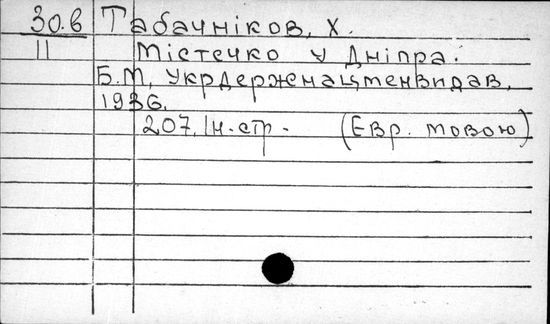 30.в Табачніков, Х.
II Містечко у Дніпра.
Б.М, Укрдержнацменвидав,
1936.
207, Iн.стр. (Євр. мовою)